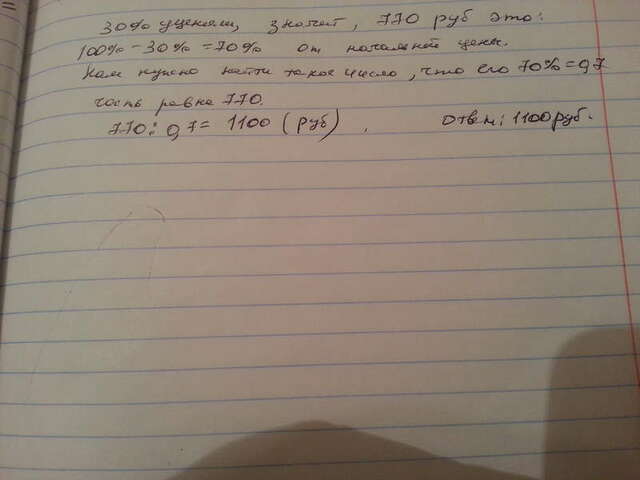 30% уценяли, значит, 770 руб это:
100% - 30% = 70% от начальной цены.
Нам нужно найти такое число, что его 70% = 0,7
часть равна 770.
770 : 0,7 = 1100 (руб). Ответ: 1100 руб.